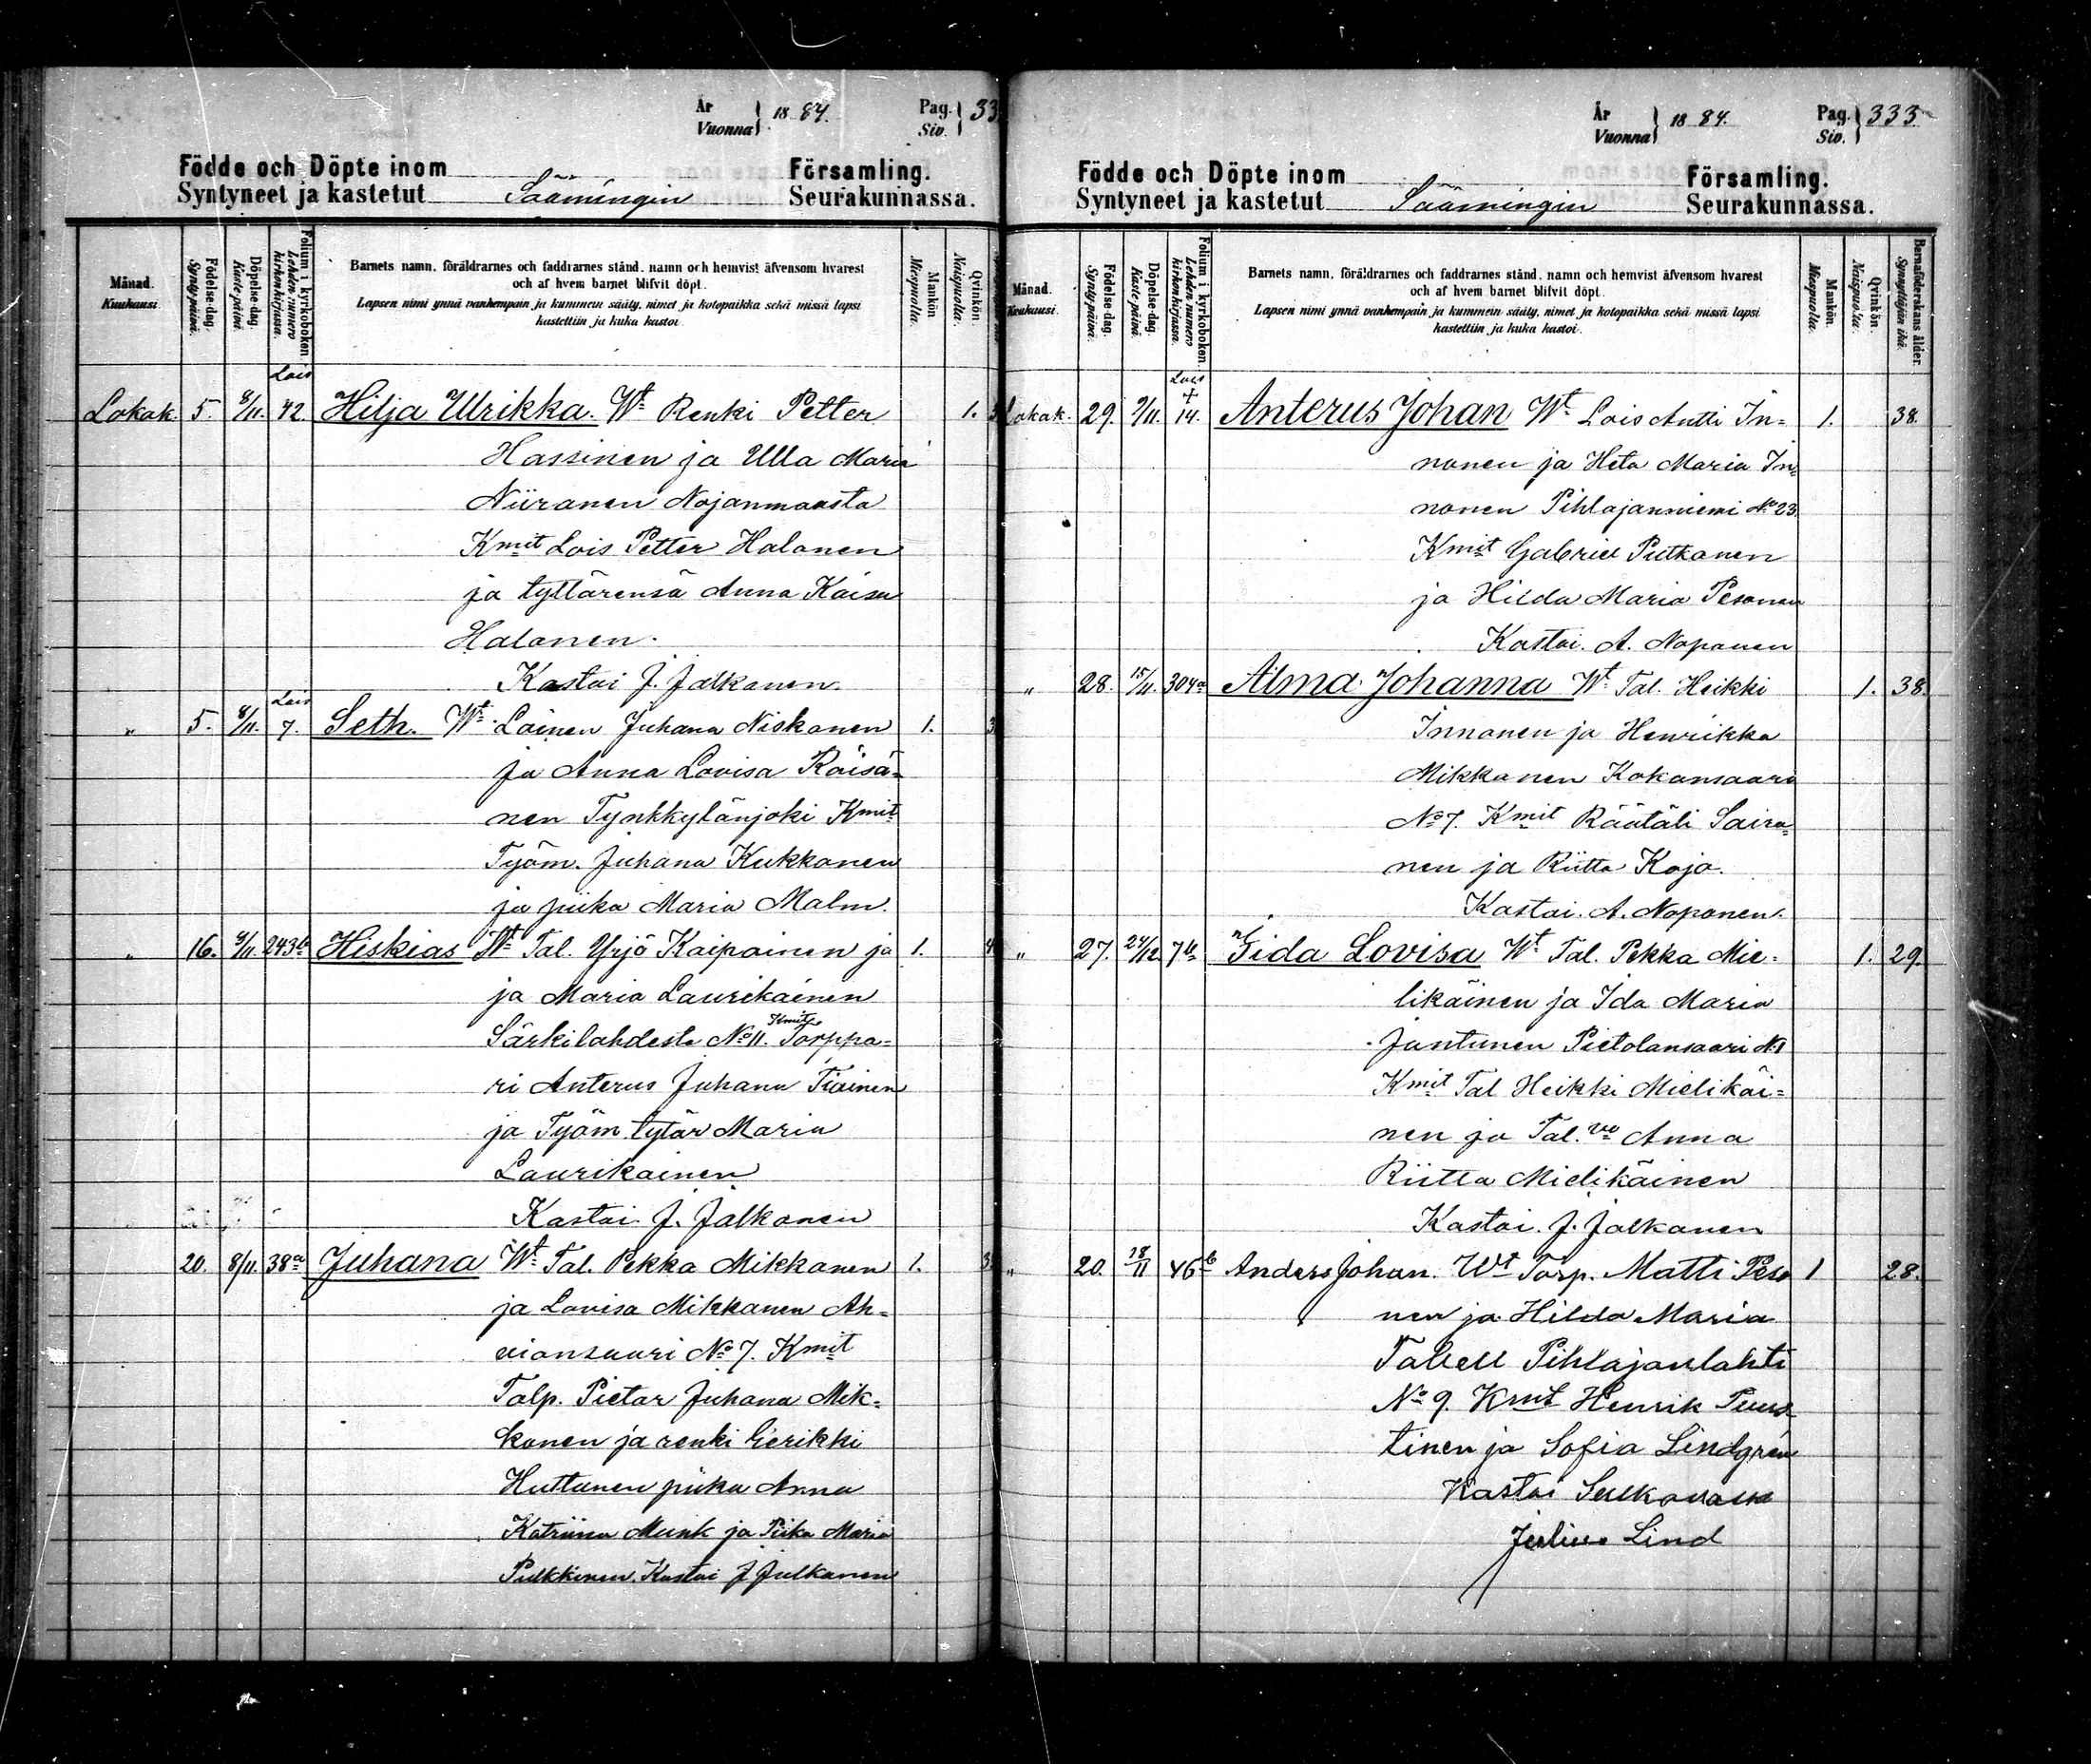 År
Vuonna } 1884.
Pag.
Siv. } 33
Födde och Döpte inom Församling.
Syntyneet ja kastetut Säämingin Seurakunnassa.
Månad.
Kuukausi.
Födelse-dag.
Synty-päivä.
Döpelse-dag.
Kaste-päivä.
Folium i kyrkoboken.
Lehden numero
kirkonkirjassa.
Barnets namn, föräldrarnes och faddrarnes stånd, namn och hemvist äfvensom hvarest
och af hvem barnet blifvit döpt.
Lapsen nimi ynnä vanhempain ja kummein sääty, nimet ja kotopaikka sekä missä lapsi
kastettiin ja kuka kastoi.
Mankön.
Miespuolia.
Qvinkön.
Naispuolia.
Lois
Lokak. 5. 8/11. 42. Hilja Ulrikka. Wt Renki Petter 1. 3
Hassinen ja Ulla Maria
Niiranen Nojanmaasta
Kmit Lois Petter Halonen
ja tyttärensä Anna Kaisa
Halonen.
Kastoi J. Jalkanen.
Lois
„ 5. 8/11. 7. Seth. Wt Loinen Juhana Niskanen 1. 3
ja Anna Lovisa Räisä=
nen Tynkkylänjoki Kmit
Työm. Juhana Kukkonen
ja piika Maria Malm.
„ 16. 9/11. 243b Hiskias Wt Tal. Yrjö Kaipainen ja 1. 4
ja Maria Laurikainen
Särkilahdesta No 11. Kmit Torppa=
ri Anterus Juhana Tiainen
ja Työm. tytär Maria
Laurikainen
Kastoi J. Jalkanen
20. 8/11. 38a Juhana Wt Tal. Pekka Mikkonen 1. 3
ja Lovisa Mikkanen Ah=
vionsaari No 7. Kmit
Talp. Pietar Juhana Mik=
konen ja renki Eerikki
Huttunen piika Anna
Katriina Munk ja Piika Maria
Pulkkinen. Kastoi J Jalkanen
År
Vuonna } 1884.
Pag.
Siv. } 333
Födde och Döpte inom Församling.
Syntyneet ja kastetut Säämingin Seurakunnassa.
Månad.
Kuukausi.
Födelse-dag.
Synty-päivä.
Döpelse-dag.
Kaste-päivä.
Folium i kyrkoboken.
Lehden numero
kirkonkirjassa.
Barnets namn, föräldrarnes och faddrarnes stånd, namn och hemvist äfvensom hvarest
och af hvem barnet blifvit döpt.
Lapsen nimi ynnä vanhempain ja kummein sääty, nimet ja kotopaikka sekä missä lapsi
kastettiin ja kuka kastoi.
Mankön.
Miespuolia.
Qvinkön.
Naispuolia.
Barnaföderskans ålder.
Synnyttäjän ikä.
Lois
+
Lokak. 29. 9/11. 14. Anterus Johan Wt Lois Antti In= 1. 38.
nonen ja Heta Maria In=
nonen Pihlajanniemi No 23.
Kmit Gabriel Putkonen
ja Hilda Maria Pesonen
Kastoi. A. Noponen
„ 28. 15/11. 304a Alma Johanna Wt Tal. Heikki 1. 38.
Innanen ja Henrikka
Mikkonen Kokonsaari
No 7. Kmit Räätäli Saira=
nen ja Riitta Kojo.
Kastoi. A. Noponen.
„ 27. 24/12 7b Gida Lovisa Wt Tal. Pekka Mie= 1. 29.
likäinen ja Ida Maria
Jantunen Pietolansaari No 1
Kmit Tal Heikki Mielikäi=
nen ja Tal. vo Anna
Riitta Mielikäinen
Kastoi. J. Jalkanen
„ 20. 18/11 46b Anders Johan. Wt Torp. Matti Peso 1 28.
nen ja Hilda Maria
Tallell Pihlajanlahti
No 9. Kmt Henrik Puus=
tinen ja Sofia Lindgren
Kastoi
Julius Lind